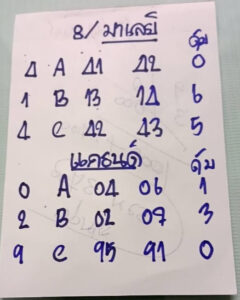 8/ มาเลย์ ดุม
4 A 41 42 0
1 B 13 14 6
4 C 42 43 5
แคธนด์ ดุม
0 A 04 06 1
2 B 02 07 3
9 C 95 91 0